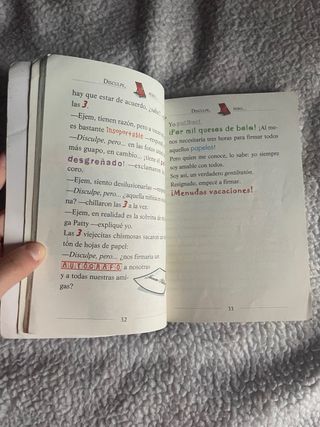 DISCULPE,
hay que estar de acuerdo, ¿sabe?
las 3.
—Ejem, tienen razón, pero a veces
es bastante insoportable —expliqué.
—Disculpe, pero... en las fotos
más guapo, en cambio... ¡tiene el
desgreñado! —exclamaron a
coro.
—Ejem, siento desilusionarlas
—Disculpe, pero... ¿aquella niña es
na? —chillaron las 3 a la vez.
—Ejem, en realidad es la sobrina de
ga Patty —expliqué yo.
Las 3 viejecitas chismosas sacaron
tón de hojas de papel:
—Disculpe, pero... ¿nos firmaría un
AUTÓGRAFO a nosotras
y a todas nuestras ami-
gas?
32
DISCULPE, PERO...
Yo
¡Por mil quesos de bola! ¡Al me-
nos necesitaría tres horas para firmar todos
aquellos papeles!
Pero quien me conoce, lo sabe: yo siempre
soy amable con todos.
Soy así, un verdadero gentilratón.
Resignado, empecé a firmar.
¡Menudas vacaciones!
33